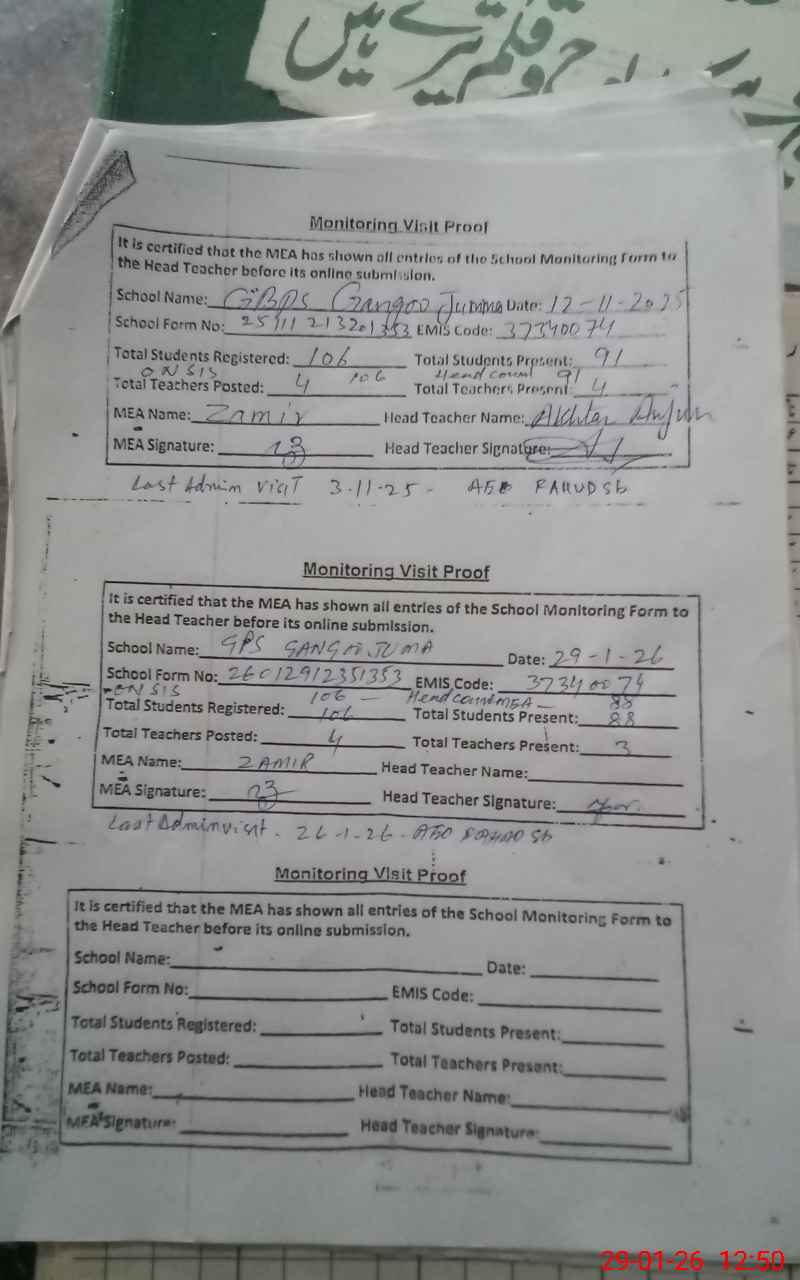 حرف و قلم تیرے ہیں
Monitoring Visit Proof
It is certified that the MEA has shown all entries of the School Monitoring Form to
the Head Teacher before its online submission.
School Name: GBPS Gangoo Jumma Date: 12-11-2025
School Form No: EMIS Code: 37340074
Total Students Registered: 106 Total Students Present: 91
ON SIS 106 Head count 91
Total Teachers Posted: 4 Total Teachers Present: 4
MEA Name: Zamir Head Teacher Name: Akhtar Anjum
MEA Signature: Head Teacher Signature:
Last Admin visit 3-11-25 - AEO
Monitoring Visit Proof
It is certified that the MEA has shown all entries of the School Monitoring Form to
the Head Teacher before its online submission.
School Name: GPS GANGOO JUMA Date: 29-1-26
School Form No: 26012912351353 EMIS Code: 37340074
ON SIS 106 - Headcount MEA - 88
Total Students Registered: 106 Total Students Present: 88
Total Teachers Posted: 4 Total Teachers Present: 3
MEA Name: ZAMIR Head Teacher Name:
MEA Signature: Head Teacher Signature:
Last Admin visit - 26-1-26 - AEO
Monitoring Visit Proof
It is certified that the MEA has shown all entries of the School Monitoring Form to
the Head Teacher before its online submission.
School Name: Date:
School Form No: EMIS Code:
Total Students Registered: Total Students Present:
Total Teachers Posted: Total Teachers Present:
MEA Name: Head Teacher Name:
MEA Signature: Head Teacher Signature:
29-01-26 12:50